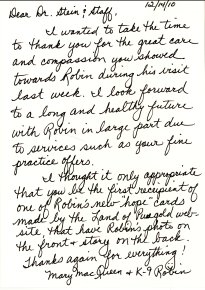 12/14/10
Dear Dr. Stein & Staff,
I wanted to take the time
to thank you for the great care
and compassion you showed
towards Robin during his visit
last week. I look forward
to a long and healthy future
with Robin in large part due
to services such as your fine
practice offers.
I thought it only appropriate
that you be the first recipient of
one of Robin's new "hope" cards
made by the Land of PureGold web-
site that have Robin's photo on
the front & story on the back.
Thanks again for everything!
Mary MacQueen & K-9 Robin